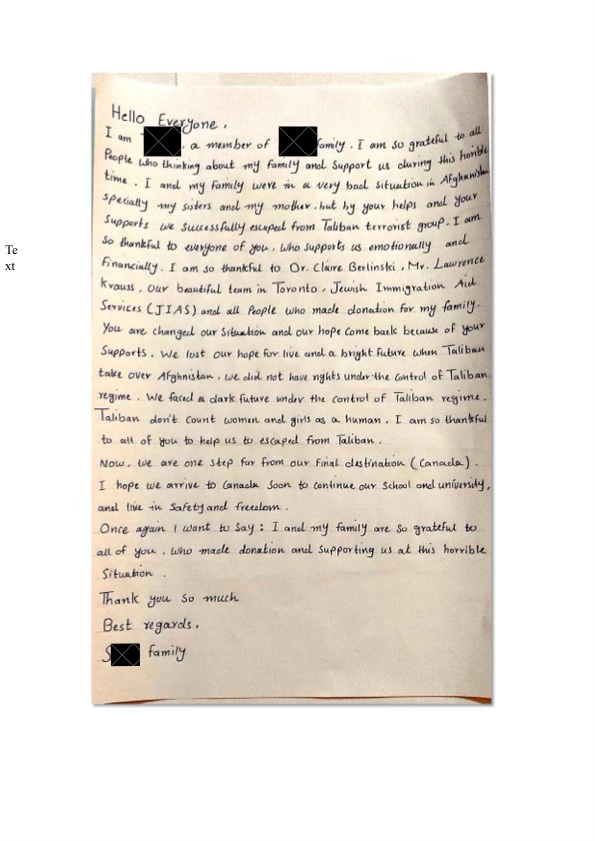 Te
xt
Hello Everyone,
I am , a member of family. I am so grateful to all
People who thinking about my family and support us during this horible
time. I and my family were in a very bad situation in Afghanistan
specially my sisters and my mother. but by your helps and your
Supports we successfully escaped from Taliban terrorist group. I am
So thankful to everyone of you, who supports us emotionally and
Financially. I am so thankful to Dr. Claire Berlinski, Mr. Lawrence
Krauss, Our beautiful team in Toronto, Jewish Immigration Aid
Services (JIAS) and all People who made donation for my family.
You are changed our Situation and our hope come back because of your
Supports. We lost our hope for live and a bright Future when Taliban
take over Afghnistan. we did not have rights under the control of Taliban
regime. We faced a dark future under the control of Taliban regime.
Taliban don't count women and girls as a human. I am so thankful
to all of you to help us to escaped from Taliban.
Now, we are one step far from our final destination (Canada).
I hope we arrive to Canada Soon to continue our School and university,
and live in Safety and freedom.
Once again I want to Say: I and my family are so grateful to
all of you, who made donation and supporting us at this horrible
Situation.
Thank you so much
Best regards,
S family